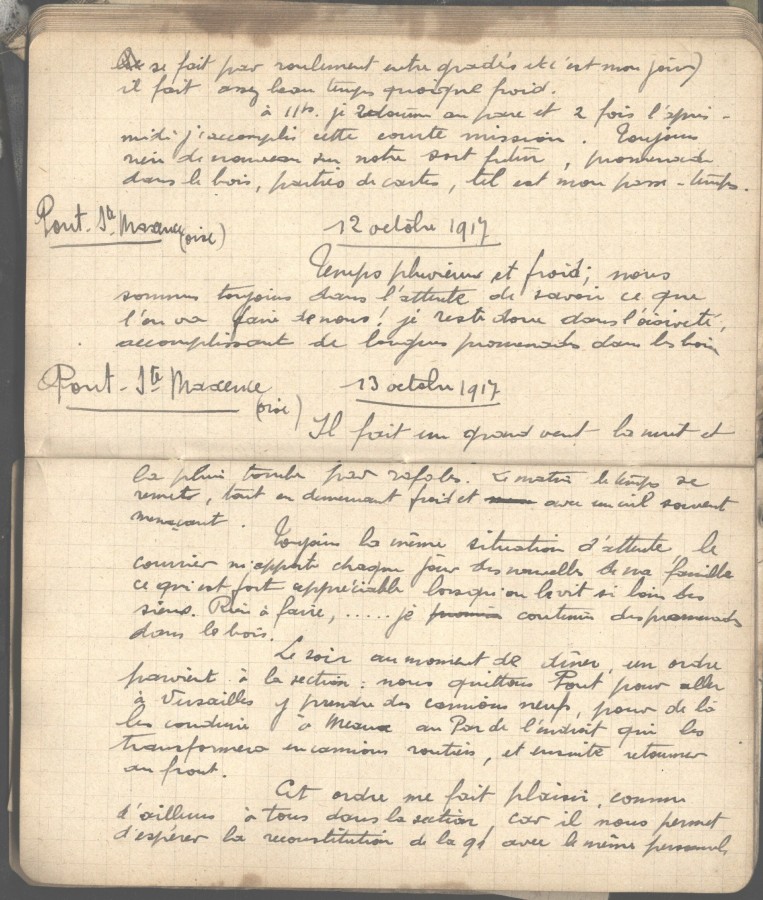 se fait par roulement entre gradés et c'est mon jour)
il fait assez beau temps quoique froid.
à 11h. je au parc et 2 fois l'après-
midi j'accomplis cette courte mission. Toujours
rien de nouveau sur notre sort futur, promenade
dans le bois, parties de cartes, tel est mon passe-temps.
Pont-Ste Maxence (oise) 12 octobre 1917
Temps pluvieux et froid; nous
sommes toujours dans l'attente de savoir ce que
l'on va faire de nous! je reste donc dans l'oisiveté,
accomplissant de longues promenades dans les bois
Pont-Ste Maxence (oise) 13 octobre 1917
Il fait un grand vent la nuit et
la pluie tombe par rafales. Le matin le temps se
remets, tout en demeurant froid et avec un ciel souvent
menaçant.
Toujours la même situation d'attente, le
courrier m'apporte chaque jour des nouvelles de ma famille
ce qui est fort appréciable lorsqu'on vit si loin des
siens. Rien à faire, ..... je continue des promenades
dans le bois.
Le soir au moment de dîner, un ordre
parvient à la section: nous quittons Pont pour aller
à Versailles y prendre des camions neufs, pour de là
les conduire à Meaux au Parc de l'endroit qui les
transformera en camions routiers, et ensuite retourner
au front.
Cet ordre me fait plaisir, comme
d'ailleurs à tous dans la section car il nous permet
d'espérer la reconstitution de la avec le même personnel